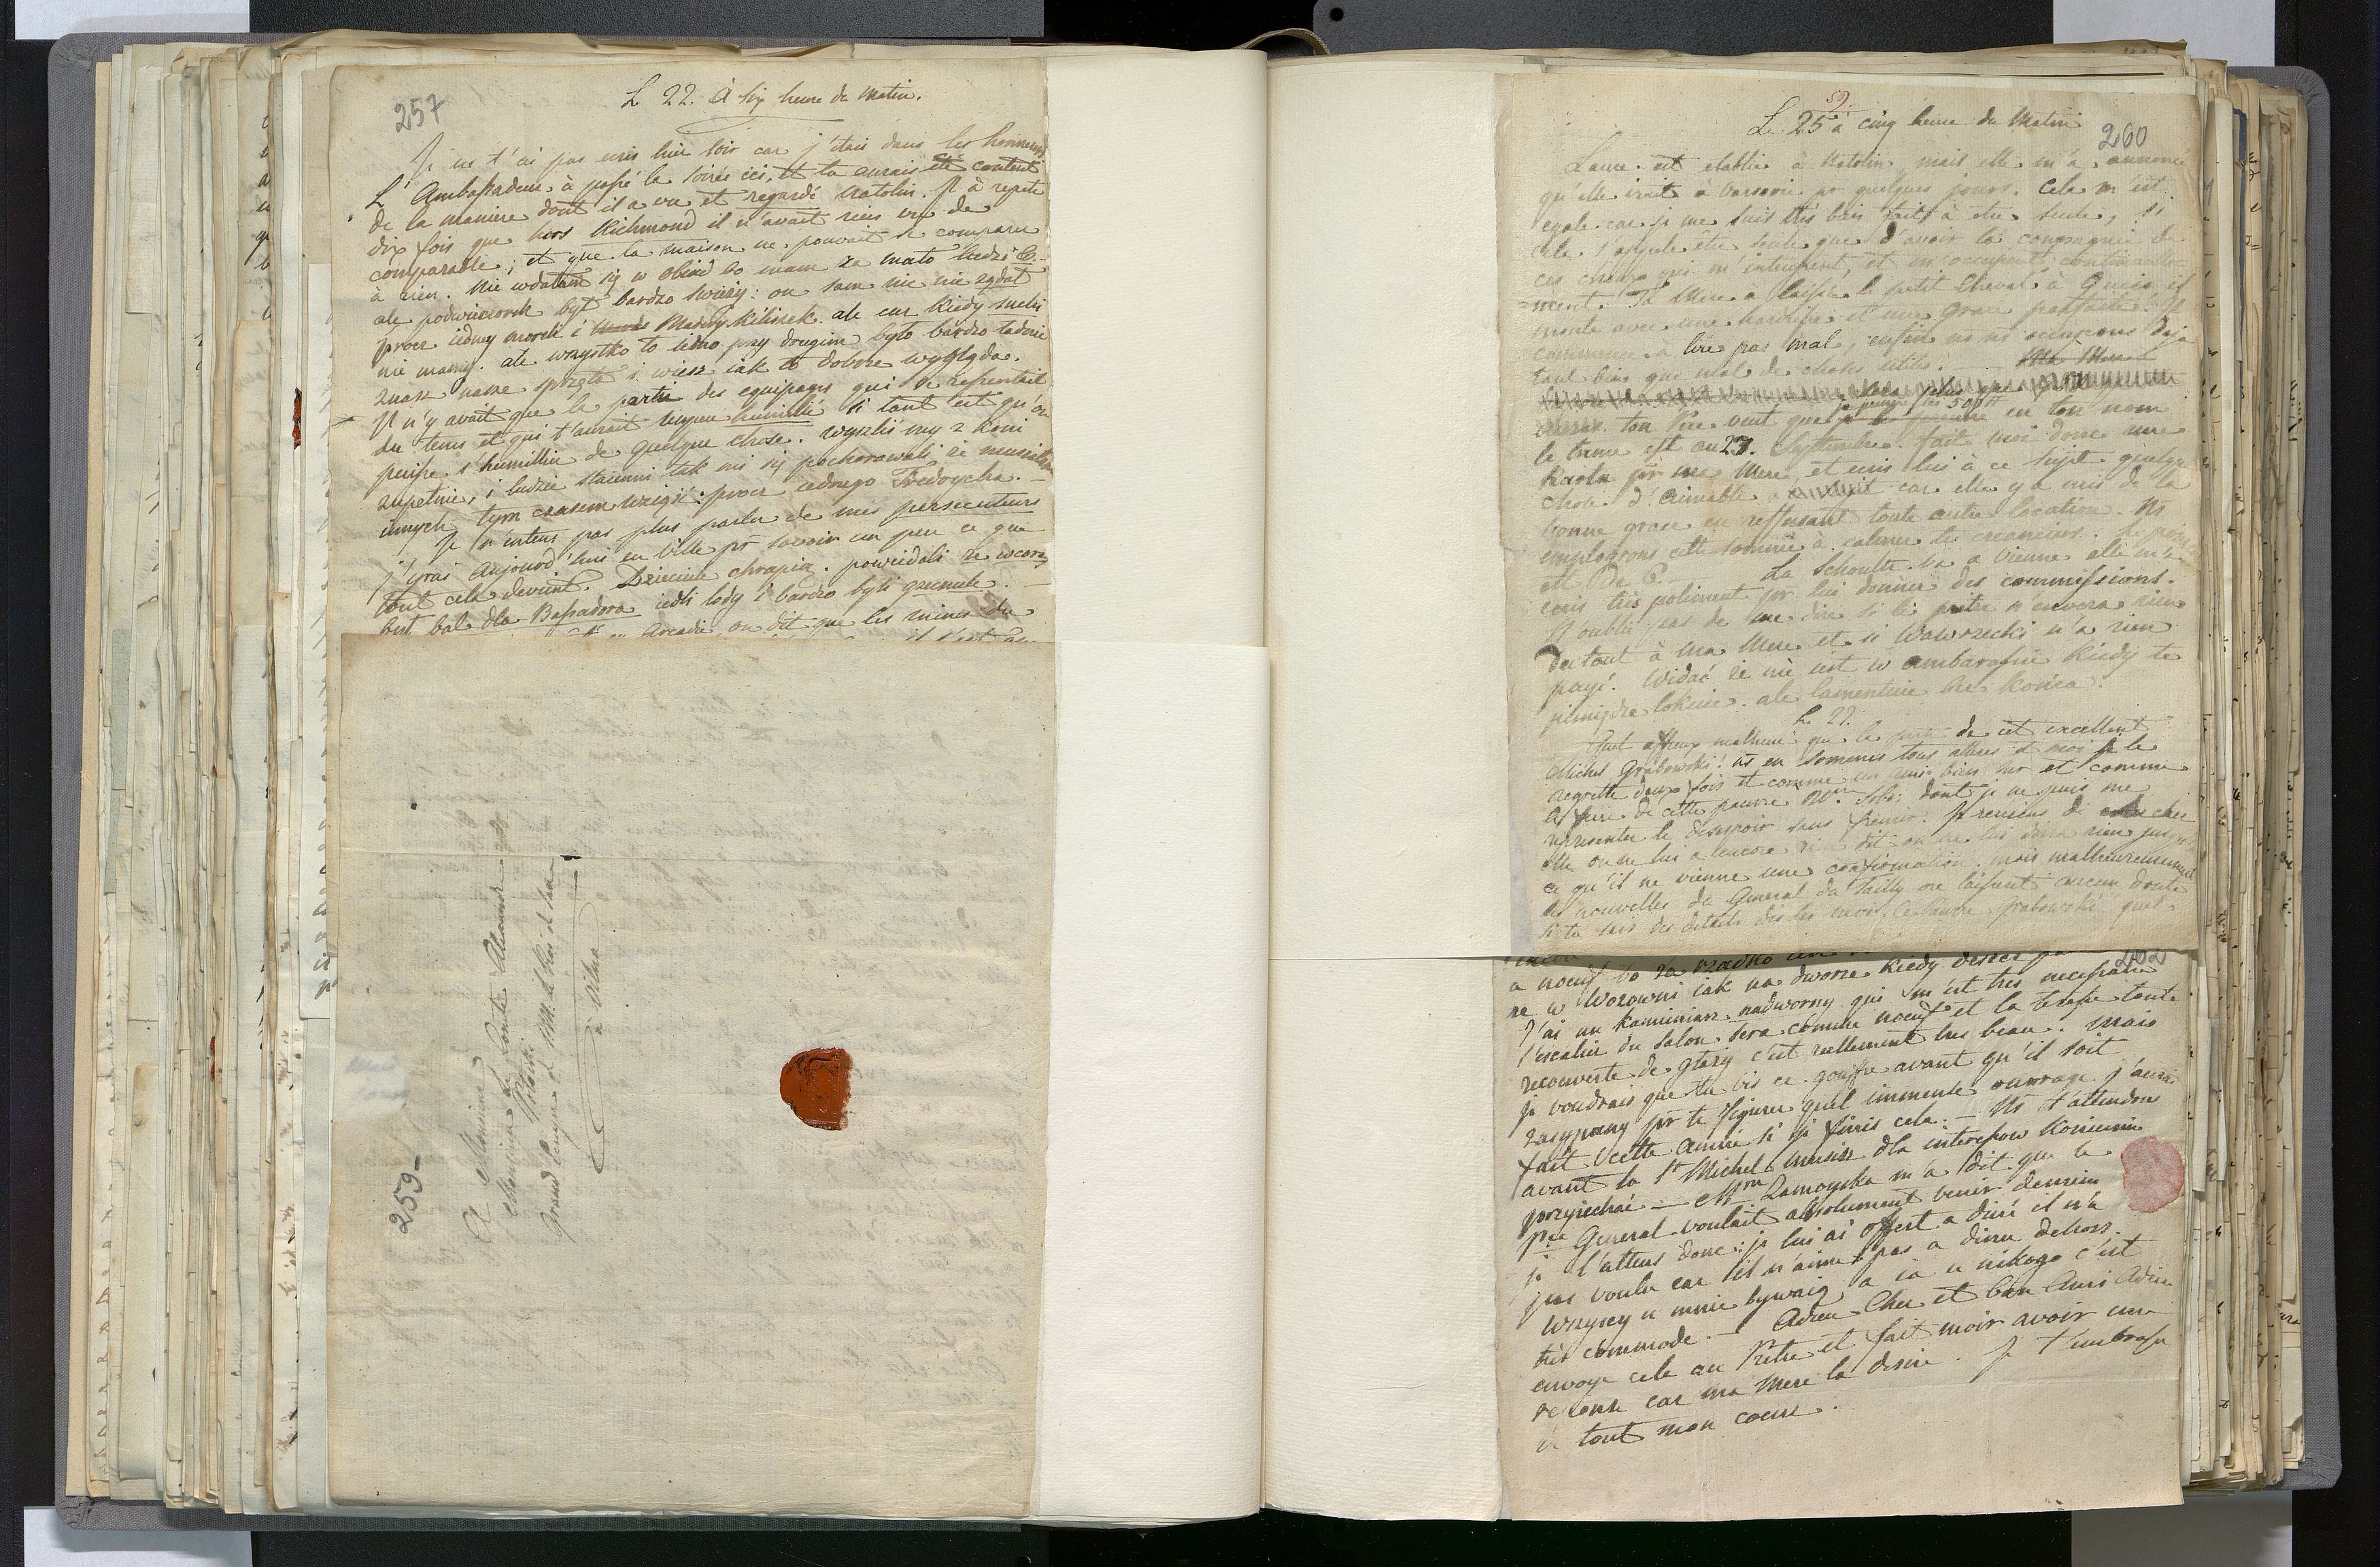 257
L 22. à six heure du Matin.
Je ne t'ai pas ecris hier soir car j'étais dans les honneurs
L'Ambassadeur à passé la soirée ici, et tu aurais été content
de la maniere dont il a vu et regardé Natolin. Il à repeté
dix fois que hors Richmond il n'avait rien vu de
comparable; et que la maison ne pouvait se comparer
à rien. Nie wdałam się w obiad bo mam za mało ludzi
ale podwieczorek był bardzo świeży: on sam nic nie zgdał
procz iedney moreli i Madery kiliszek. ale cur kiedy suchi
nie mamy. ale wszystko to iedno przy drougim było bardzo ładnie
znasz nasze sprzęta i wiesz iak to dobrze wygląda.
Il n'y avait que la partie des equipages qui se ressentait
du tems et qui t'auroit un peu humilié si tant est qu'on
puisse s'humilier de quelque chose. wyszliśmy z koni
zupełnie, i ludzie stajenni tak mi się pochorowali, że musiałam
innych tym czasem wziąść: procz iednego Fredrycha. —
Je n'entens pas plus parler de mes persecuteurs
j'yrai aujourd'hui en ville pr savoir un peu ce que
tout cela devient. Dziecinie chrapią. powiedali że wczoray
był bal dla Bassadora iedli lody i bardzo byli grzeczule. —
en Arcadie, on dit que les ruines du
259-
A Monsieur
Monsieur le Comte Alexandre
Potocki
grand Ecuyer de S.M. le Roi de Saxe
à Vilna
59.
Le 25 à cinq heure du Matin
260
Laure est etablie à Natolin, mais elle m'a annoncé
qu'elle irait à Varsovie pr quelques jours. Cela m'est
egale car je me suis très bien faite à etre seule, si
cela s'appele être seule que d'avoir la compagnie de
ces choux qui m'interessent, et m'occupent continuelle-
ment. Ta Mere à laissé le petit cheval à Gucio, il
monte avec une hardiesse et une grace parfaite. Il
commence à lire pas mal, enfin ns ns occupons deja
tant bien que mal de choses utiles.
ton Pere veut que je prenne les 500 # en ton nom
le terme est au 27. Septembre. fait moi donc une
Karta pr ma Mere, et ecris lui à ce sujet quelque
chose d'aimable car elle y a mis de la
bonne grace en reffusant toute autre location. Ns
employerons cette somme à calmer tes creanciers.
La Schoultz va a Vienne elle m'a
ecris très poliment pr lui donner des commissions.
N'oublie pas de me dire si le pretre n'envera rien
du tout à ma Mere et si Wawrzecki n'a rien
payé. Widać że nie iest w ambarasie kiedy te
pieniądze lokuie. ale lamentuie bez końca.
Le 27.
Quel affreux malheur que la perte de cet excellent
Michel Grabowski! ns en sommes tous alterés et moi je le
regrette deux fois et comme un ami bien sur et comme
le frere de cette pauvre Me. Sob: dont je ne puis me
representer le desespoir sans fremir. Je reviens de chez
elle on ne lui a encore rien dit on ne lui dira rien jusqu'à
ce qu'il ne vienne une confirmation. mais malheureusement
les nouvelles du General du Tailly ne laissent aucun doute
si tu sais des details dis les moi. Ce pauvre Grabowski quel
202
a noeuf bo za rzadko
że w Wozowni iak na dworze kiedy deszcz
J'ai un Kamieniarz nadworny qui m'est très necessaire
l'escalier du salon sera comme noeuf et la terasse toute
recouverte de głazy c'est reellement très beau. mais
je voudrais que tu vis ce gouffre avant qu'il soit
zasypany pr te figurer quel immense ouvrage j'aurai
fait cette année si je finis cela. — Ns t'attendons
avant la St Michel musisz dla interessow koniecznie
przyjechać — Mme Zamoyska m'a dit que le
Pce General voulait absolument venir demain
je l'attens donc: je lui ai offert a diné il n'a
pas voulu car il n'aime pas a diner dehors.
wszyscy u mnie bywaią a ia u nikogo c'est
très commode. — Adieu cher et bon Ami Adieu
envoye cela au Pretre et fait moir avoir une
reponse car ma Mere la desire. Je t'embrasse
de tout mon coeur.